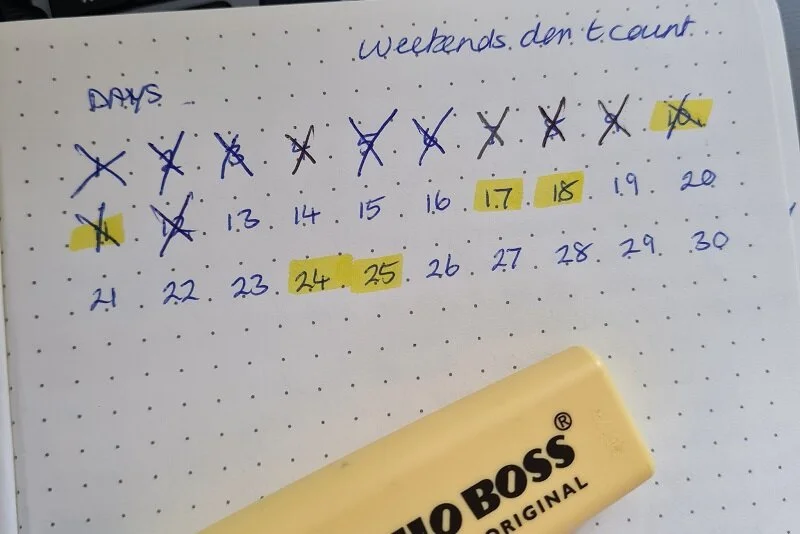 Weekends don't count
DAYS
1 2 3 4 5 6 7 8 9 10
11 12 13 14 15 16 17 18 19 20
21 22 23 24 25 26 27 28 29 30
BOSS®
ORIGINAL